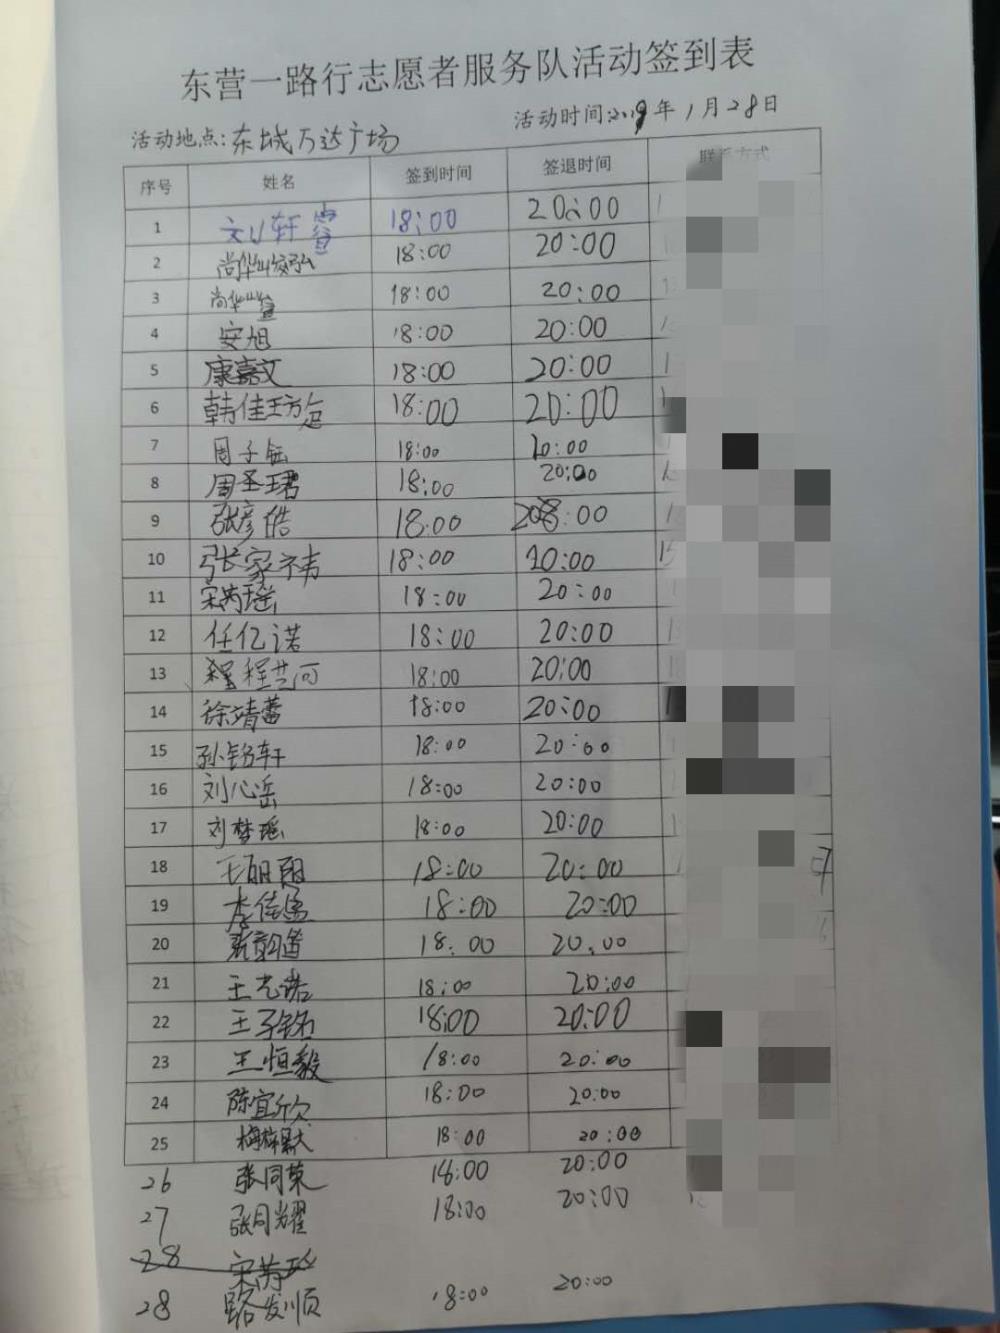 东营一路行志愿者服务队活动签到表
活动地点:东城万达广场 活动时间:2019年1月28日
序号 姓名 签到时间 签退时间 联系方式
1 刘轩 18:00 20:00
2 尚华 18:00 20:00
3 尚华 18:00 20:00
4 安旭 18:00 20:00
5 康嘉文 18:00 20:00
6 韩佳 18:00 20:00
7 周子钰 18:00 20:00
8 周圣珺 18:00 20:00
9 张彦皓 18:00 20:00
10 张家祎 18:00 20:00
11 宋芮瑶 18:00 20:00
12 任亿诺 18:00 20:00
13 程芸可 18:00 20:00
14 徐靖蕾 18:00 20:00
15 孙铭轩 18:00 20:00
16 刘心岳 18:00 20:00
17 刘梦瑶 18:00 20:00
18 王丽 18:00 20:00
19 李佳 18:00 20:00
20 18:00 20:00
21 王艺诺 18:00 20:00
22 王子铭 18:00 20:00
23 王恒毅 18:00 20:00
24 陈宜欣 18:00 20:00
25 梅梓默 18:00 20:00
26 张同荣 18:00 20:00
27 张同耀 18:00 20:00
28 宋芮
28 路发顺 18:00 20:00